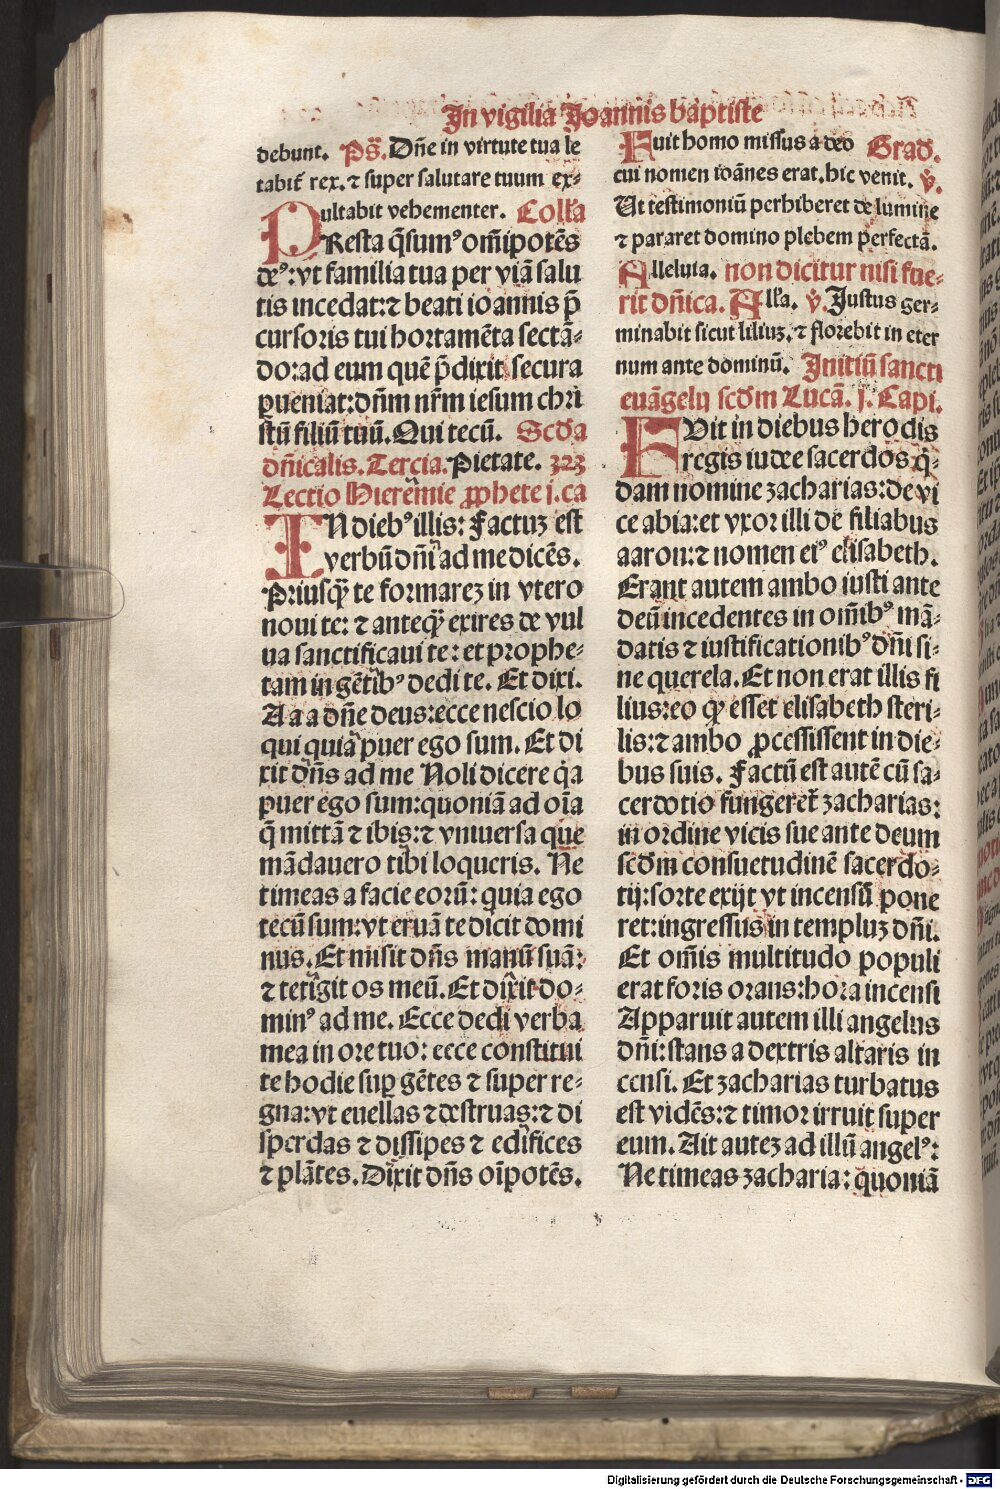 In vigilia Joannis baptiste
debunt. Ps̄. Dn̄e in virtute tua le
tabit᷑ rex. ⁊ super salutare tuum ex⸗
ultabit vehementer. Coll̄a
PResta q̄sumꝰ om̄ipotēs
deꝰ: vt familia tua per viā salu
tis incedat: ⁊ beati ioannis p̄
cursoris tui hortamēta sectā⸗
do: ad eum quē p̄dixit secura
ꝑueniat: dn̄m nr̄m iesum chri
stū filiū tuū. Qui tecū. Scd̄a
dn̄icalis. Tercia. Pietate. 323
Lectio Hieremie ꝓphete j. ca
IN diebꝰ illis: Factuꝫ est
verbū dn̄i ad me dicēs.
Priusqꝫ̄ te formareꝫ in vtero
noui te: ⁊ anteqꝫ̄ exires de vul
ua sanctificaui te: et prophe⸗
tam in gētibꝰ dedi te. Et dixi.
A a a dn̄e deus: ecce nescio lo
qui quia puer ego sum. Et di
xit dn̄s ad me Noli dicere q̇a
puer ego sum: quoniā ad oīa
q̄ mittā ⁊ ibis: ⁊ vniuersa que
mādauero tibi loqueris. Ne
timeas a facie eorū: quia ego
tecū sum: vt eruā te dicit domi
nus. Et misit dn̄s manū suā:
⁊ tetigit os meū. Et dixit do⸗
minꝰ ad me. Ecce dedi verba
mea in ore tuo: ecce constitui
te hodie suꝑ gētes ⁊ super re⸗
gna: vt euellas ⁊ destruas: ⁊ di
sperdas ⁊ dissipes ⁊ edifices
⁊ plātes. Dixit dn̄s oīpotēs.
Fuit homo missus a deo Grad.
cui nomen ioānes erat. hic venit. v̇.
Ut testimoniū perhiberet de lumine
⁊ pararet domino plebem perfectā.
Alleluia. non dicitur nisi fue⸗
rit dn̄ica. All̄a. v̇. Justus ger⸗
minabit sicut liliuꝫ. ⁊ florebit in eter
num ante dominū. Initiū sancti
euāgelij scd̄m Lucā. j. Capi.
FVit in diebus herodis
regis iudee sacerdos q̇⸗
dam nomine zacharias: de vi
ce abia: et vxor illi de filiabus
aaron: ⁊ nomen eiꝰ elisabeth.
Erant autem ambo iusti ante
deū incedentes in om̄ibꝰ mā⸗
datis ⁊ iustificationibꝰ dn̄i si⸗
ne querela. Et non erat illis fi
lius: eo qꝫ esset elisabeth steri⸗
lis: ⁊ ambo ꝓcessissent in die⸗
bus suis. Factū est autē cū sa⸗
cerdotio fungeret᷑ zacharias:
in ordine vicis sue ante deum
scd̄m consuetudinē sacerdo⸗
tij: sorte exijt vt incensū pone
ret: ingressus in templuꝫ dn̄i.
Et om̄is multitudo populi
erat foris orans: hora incensi
Apparuit autem illi angelus
dn̄i: stans a dextris altaris in
censi. Et zacharias turbatus
est vidēs: ⁊ timor irruit super
eum. Ait auteꝫ ad illū angelꝰ:
Ne timeas zacharia: quoniā
Digitalisierung gefördert durch die Deutsche Forschungsgemeinschaft - DFG